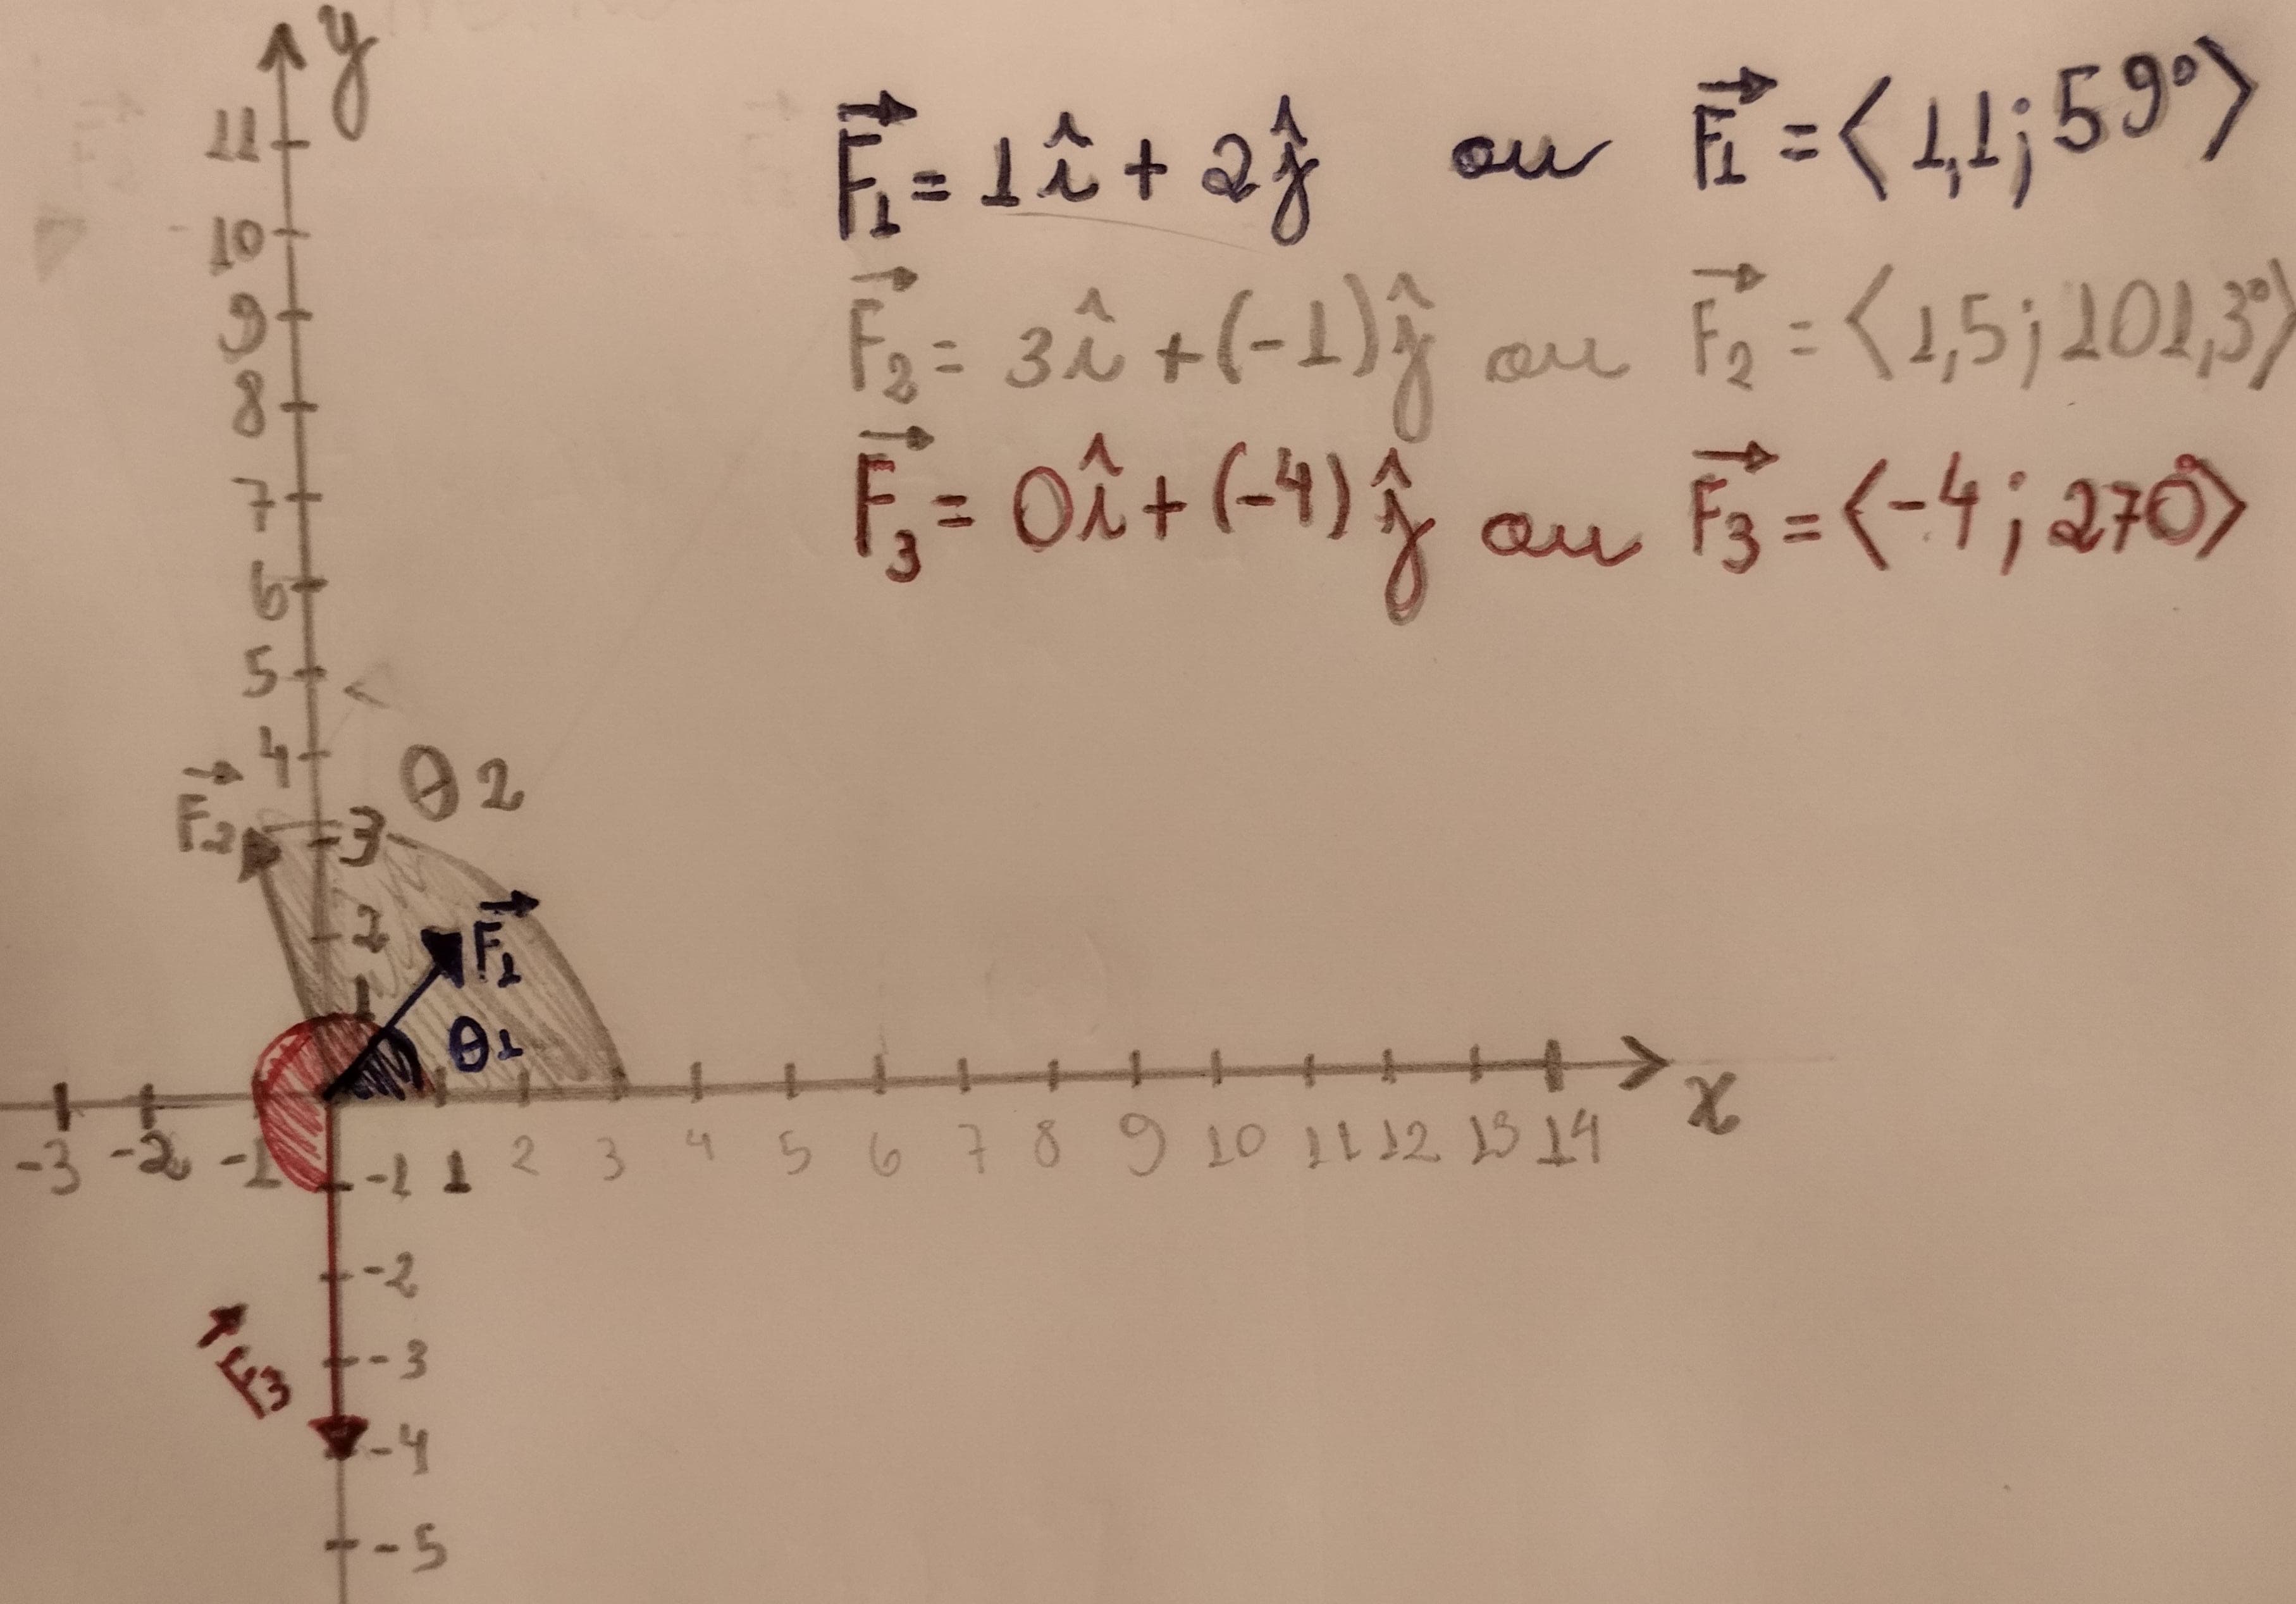 y
F₁ = 1î + 2ĵ ou F₁ = ⟨1,1; 59°⟩
F₂ = 3î + (-1)ĵ ou F₂ = ⟨1,5; 101,3°⟩
F₃ = 0î + (-4)ĵ ou F₃ = ⟨-4; 270°⟩
11
10
9
8
7
6
5
4
θ2
F₂
3
2
F₁
1
θ1
x
-3 -2 -1 -1 1 2 3 4 5 6 7 8 9 10 11 12 13 14
-2
F₃
-3
-4
-5